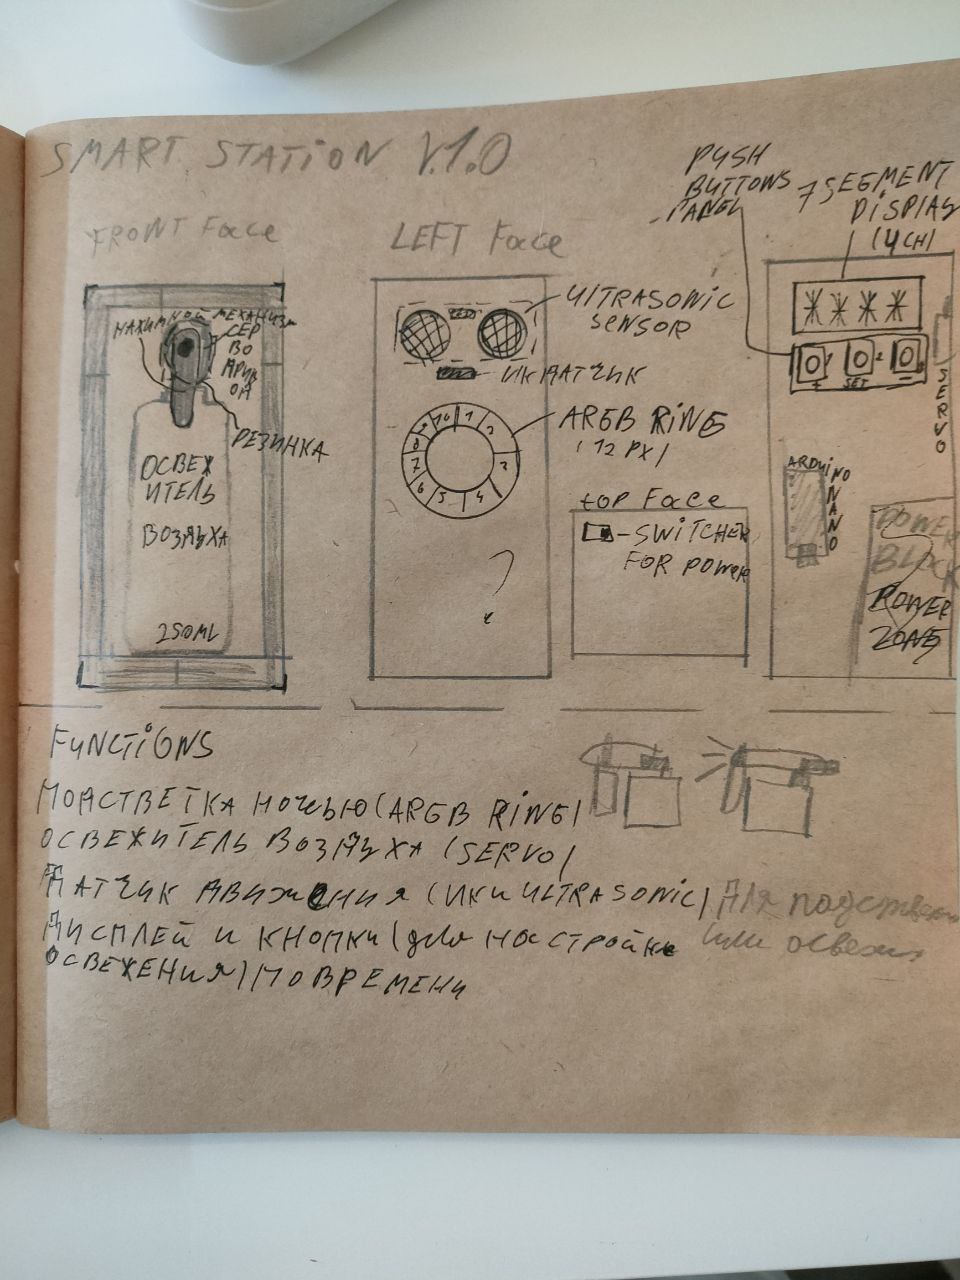 SMART STATION V.1.0
FRONT Face
НАЖИМНОЙ МЕХАНИЗМ
СЕР
ВО
ПРИВ
ОД
РЕЗИНКА
ОСВЕЖ
ИТЕЛЬ
ВОЗДУХА
250ML
LEFT Face
ULTRASONIC
SENSOR
ИК ДАТЧИК
ARGB RING
(12 PX)
10 1 2 3 4 5 6 7 8 9
?
top Face
- SWITCHER
FOR POWER
PUSH
BUTTONS
PANEL
7 SEGMENT
DISPLAY
(4CH)
+ SET -
SERVO
ARDUINO
NANO
POWER
BLOCK
POWER
ZONE
FUNCTIONS
ПОДСТВЕТКА НОЧЬЮ (ARGB RING)
ОСВЕЖИТЕЛЬ ВОЗДУХА (SERVO)
ДАТЧИК ДВИЖЕНИЯ (ИК И ULTRASONIC) для подственки
ДИСПЛЕЙ И КНОПКИ (для НАСТРОЙКИ или освежит
ОСВЕЖЕНИЯ) ПО ВРЕМЕНИ